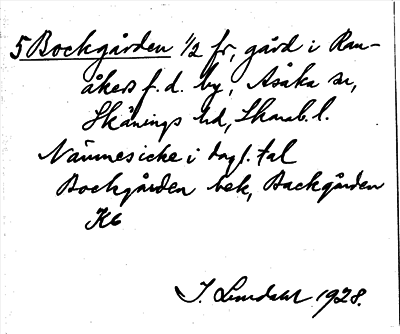 5 Bockgården 1/2 fr, gård i Ran-
åkers f. d. by, Åsaka sn,
Skånings hd, Skarab. l.
Nämnes icke i dagl. tal
Bockgården bek, Backgården
K6
J. Lundahl 1928.